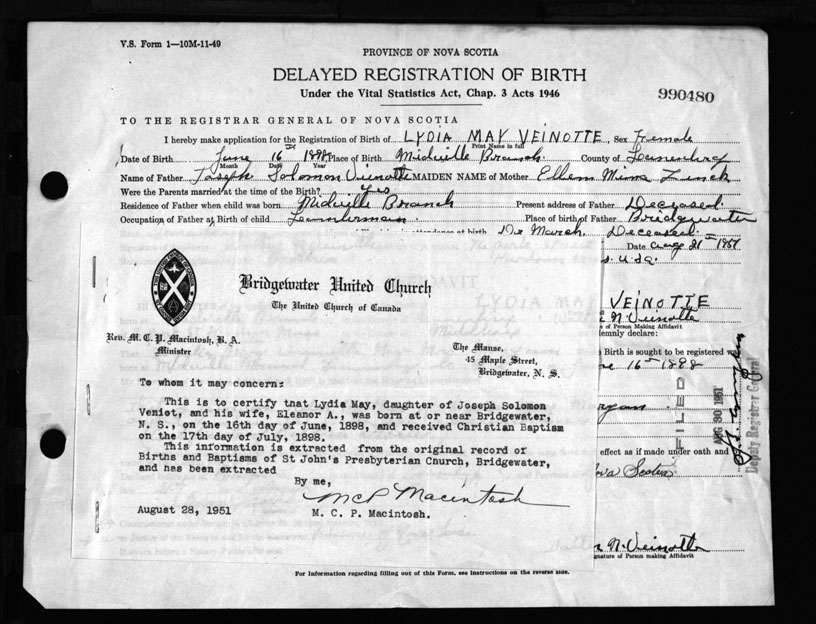 V.S. Form 1—10M-11-49
PROVINCE OF NOVA SCOTIA
DELAYED REGISTRATION OF BIRTH
Under the Vital Statistics Act, Chap. 3 Acts 1946
990480
TO THE REGISTRAR GENERAL OF NOVA SCOTIA
I hereby make application for the Registration of Birth of LYDIA MAY VEINOTTE, Sex Female
Print Name in full
Date of Birth June 16th 1898 Place of Birth Midville Branch County of Lunenburg
Month Date Year
Name of Father Joseph Solomon Veinotte MAIDEN NAME of Mother Ellen Mina Zinck
Were the Parents married at the time of the Birth? Yes
Residence of Father when child was born Midville Branch Present address of Father Deceased
Occupation of Father at Birth of child Lumberman Place of birth of Father Bridgewater
attendance at birth Deceased
Date Aug 21st 1951
U.S.A.
VEINOTTE
N. Veinotte
of Person Making Affidavit
lemnly declare:
Birth is sought to be registered
16th 1898
FILED
AUG 30 1951
Deputy Registrar General
effect as if made under oath and
Nova Scotia
N. Veinotte
ignature of Person making Affidavit
Bridgewater United Church
The United Church of Canada
Rev. M. C. P. Macintosh, B. A.
Minister
The Manse,
45 Maple Street,
Bridgewater, N. S.
To whom it may concern:
This is to certify that Lydia May, daughter of Joseph Solomon
Veniot, and his wife, Eleanor A., was born at or near Bridgewater,
N. S., on the 16th day of June, 1898, and received Christian Baptism
on the 17th day of July, 1898.
This information is extracted from the original record of
Births and Baptisms of St John's Presbyterian Church, Bridgewater,
and has been extracted
By me,
MCP Macintosh
August 28, 1951
M. C. P. Macintosh.
For Information regarding filling out of this Form, see instructions on the reverse side.